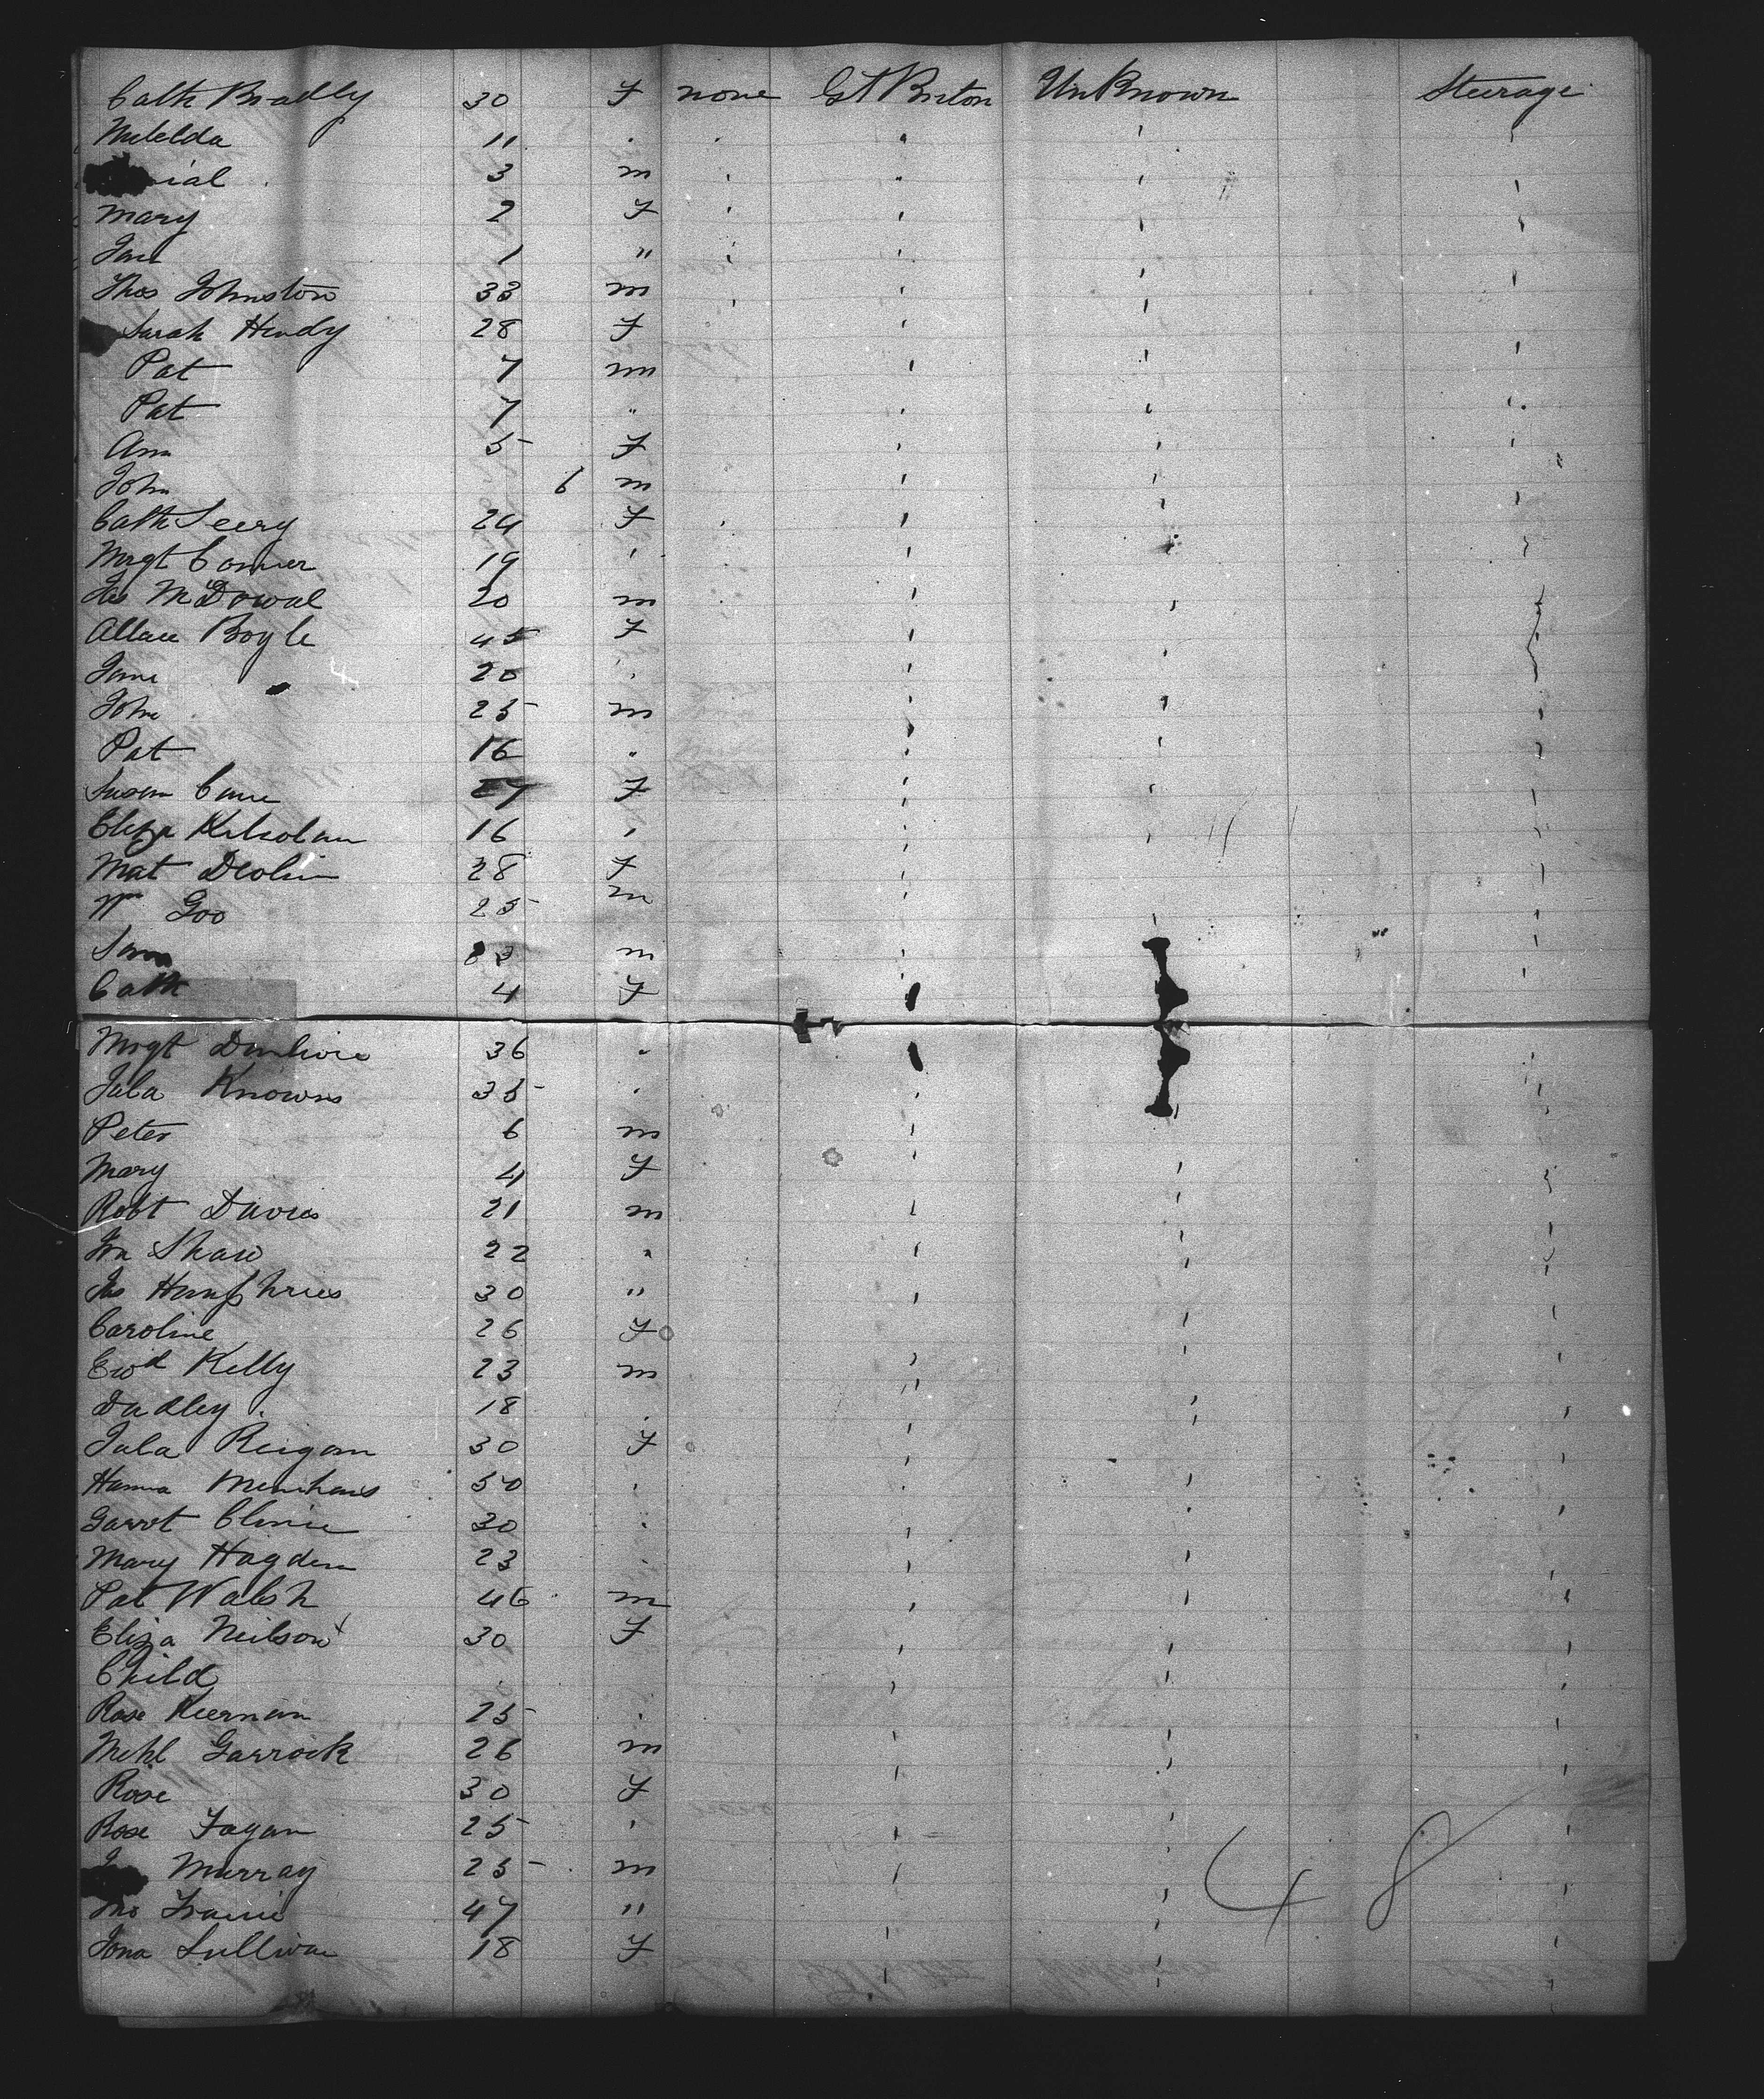 Cath Bradly 30 F none Gt Briton UnKnown Steerage
Matelda 11 . . " ' '
ial 3 m ' " ' '
Mary 2 F ' ' ' '
Jane 1 " ' ' '
Thos Johnston 33 m ' ' '
Sarah Hendy 28 F ' '
Pat 7 m ' ' '
Pat 7 " ' ' '
Ann 5 F ' ' '
John 6 m ' '
Cath Seery 24 F ' ' '
Mrgt Conner 19 ' ' '
McDowal 20 m ' '
Boyle 45 F ' '
Jane 20 ' ' '
John 25 m ' '
Pat 16 " ' '
Susan Cane 27 F ' '
Eliza 16 ' ' '
Mat Devlin 28 F ' '
Wm Goo 25 m ' '
Sam m ' '
Cath 4 F '
Mrgt 36 "
Jula Knowns 35 ' '
Peter 6 m '
Mary 4 F ' '
Robt Davies 21 m ' '
Jn Shaw 22 " ' '
Jas Humphries 30 " '
Caroline 26 F '
Ewd Kelly 23 m ' '
Dudley 18 . ' '
Jula Reigan 30 F '
Hanna Menihans 50 ' '
Garrot Clinie 30 ' '
Mary Hagden 23 ' '
Pat Walsh 46 m ' '
Eliza Neilson + 30 F '
Child '
Rose Keernan 25 ' '
Mchl Garrock 26 m '
Rose 30 F '
Rose Fagan 25 ' '
Murray 25 m '
47 "
Sullivan 18 F '
48